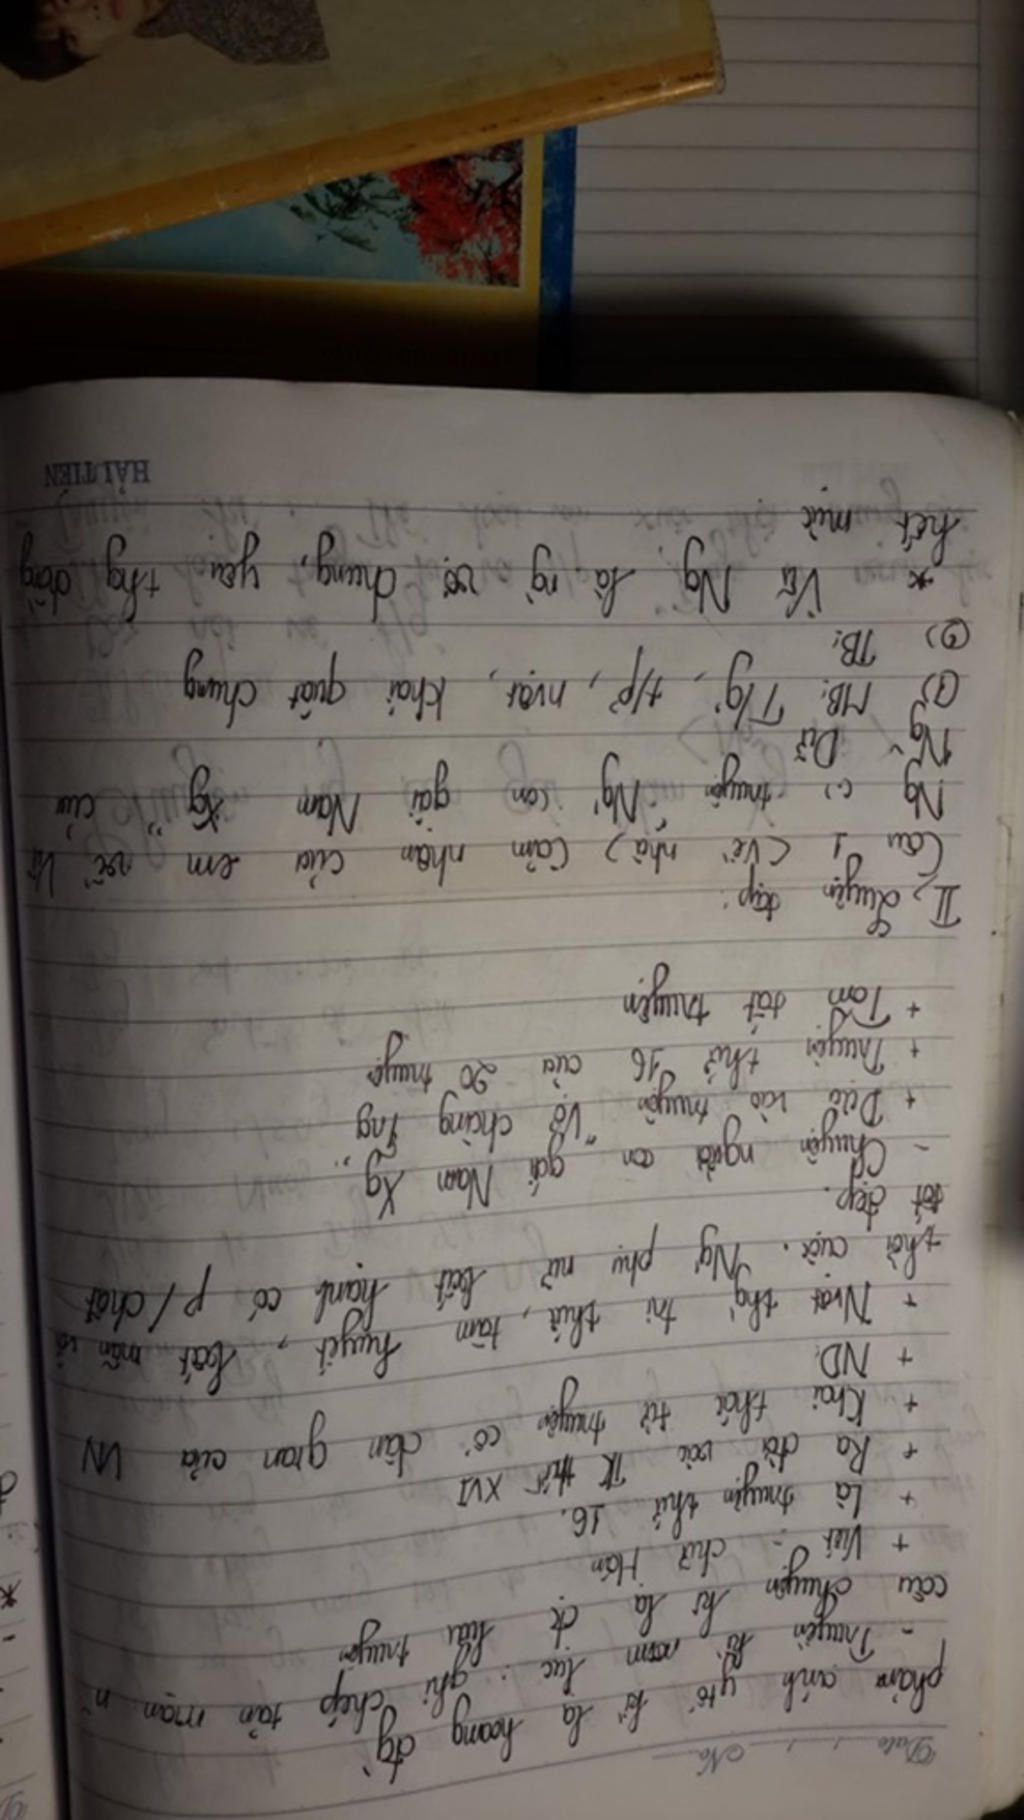 Date No
phản ánh ytố kì lạ hoang đg
- Truyền kì mạn lục : ghi chép tản mạn n
câu chuyện kì lạ đc lưu truyền
+ Viết = chữ Hán
+ Là truyện thứ 16.
+ Ra đời vào TK thứ XVI
+ Khai thác từ truyện cổ dân gian của VN
+ ND:
+ Nvật thg trí thức, tâm huyết, bất mãn vs
thời cuộc. Ng' phụ nữ bất hạnh có p/chất
tốt đẹp.
- Chuyện người con gái Nam Xg
+ Dựa vào truyện "Vợ chàng Trg"
+ Truyện thứ 16 của 20 truyện
+ Tóm tắt truyện
II, Luyện tập:
Câu 1 (Về nhà) Cảm nhận của em về Vũ
Ng (') truyện "Ng' con gái Nam Xg" của
Ng~ Dữ
(1) MB: T/g', t/p', nvật, khái quát chung
(2) TB:
* Vũ Ng là ng' vợ chung, yêu thg chồng
hết mực
HẢI TIẾN